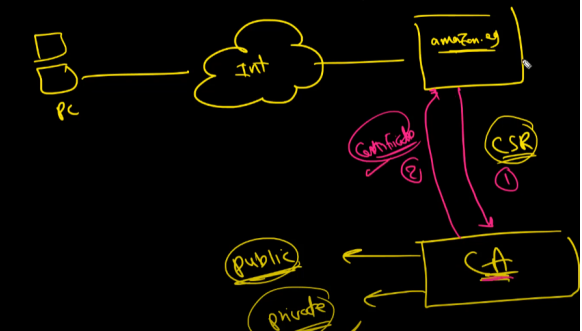 PC
Int
amazon.eg
Certificate
2
CSR
1
CA
public
private